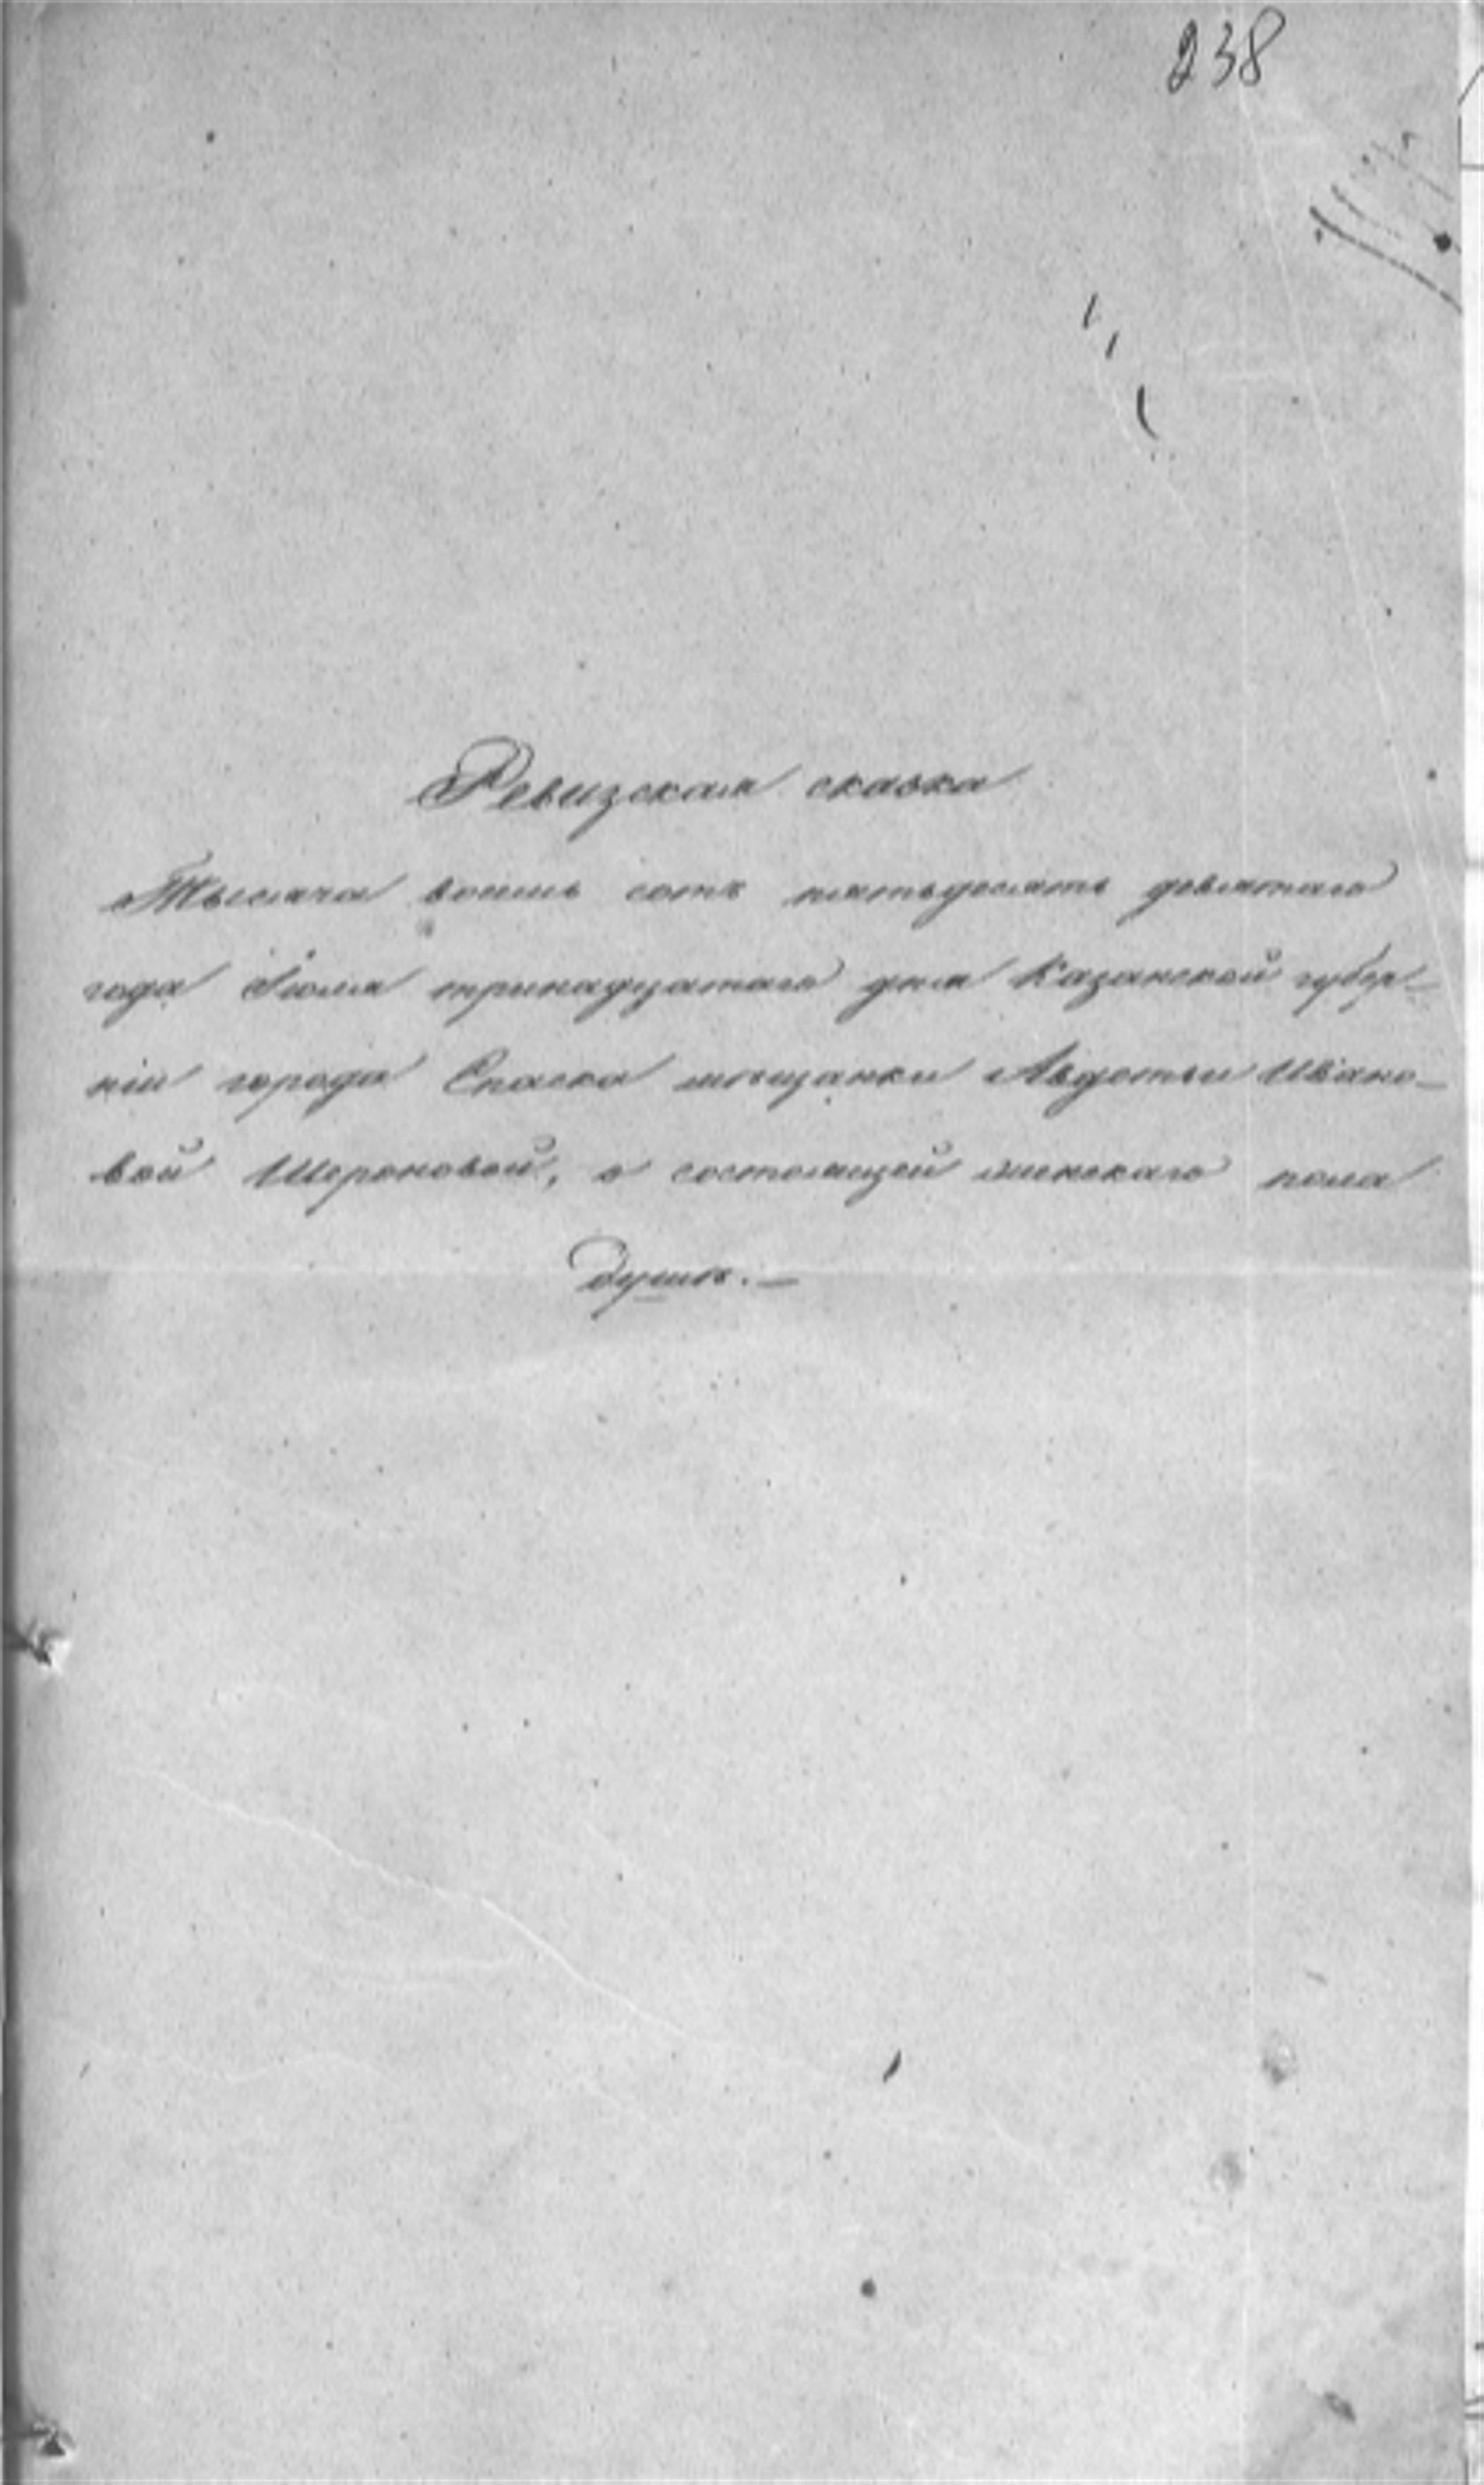 238
Ревизская сказка
Тысяча восемь сотъ пятьдесятъ девятаго
года Іюля тринадцатаго дня Казанской губер-
ніи города Спаска мѣщанки Авдотьи Ивано-
вой Шероновой, о состоящей женскаго пола
душѣ.—